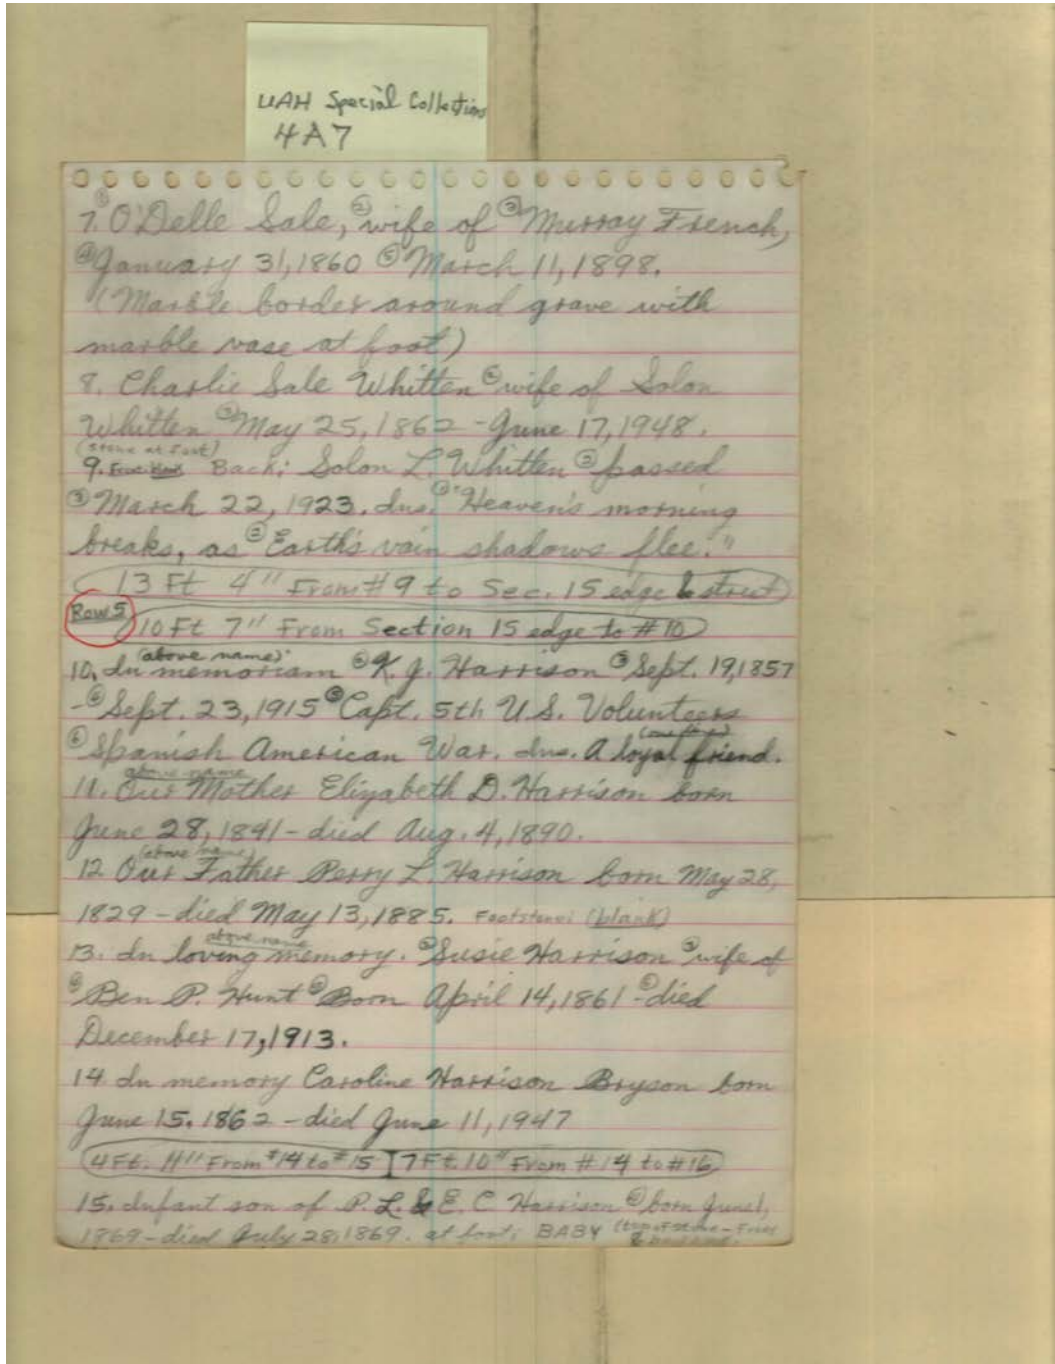 UAH Special Collections
4A7
7. ① O'Delle Sale, ② wife of ③ Murray French,
④ January 31, 1860 ⑤ March 11, 1898.
(Marble border around grave with
marble vase at foot)
8. Charlie Sale Whitten ② wife of Solon
Whitten ③ May 25, 1862 - June 17, 1948.
(stone at foot)
9. Back: Solon L. Whitten ② passed
③ March 22, 1923. Ins. "Heaven's morning
breaks, as ② Earth's vain shadows flee."
13 Ft 4" From #9 to Sec. 15 edge & street
Row 5
10 Ft 7" From Section 15 edge to #10
(above name)
10. In memoriam ② K. J. Harrison ③ Sept. 19, 1857
- ④ Sept. 23, 1915 ⑤ Capt. 5th U.S. Volunteers
⑥ Spanish American War. Ins. A loyal friend.
above name
11. Our Mother Elizabeth D. Harrison born
June 28, 1841 - died Aug. 4, 1890.
(above name)
12 Our Father Perry L. Harrison born May 28,
1829 - died May 13, 1885. Footstone: (blank)
above name
13. In loving memory. ② Susie Harrison ③ wife of
④ Ben P. Hunt ⑤ Born April 14, 1861 - ⑥ died
December 17, 1913.
14. In memory Caroline Harrison Bryson born
June 15. 1862 - died June 11, 1947
4 Ft. 11" From #14 to #15 7 Ft. 10" From #14 to #16
15. Infant son of P. L. & E. C Harrison ② born June 1,
1869 - died July 28, 1869. at foot: BABY (top of stone -